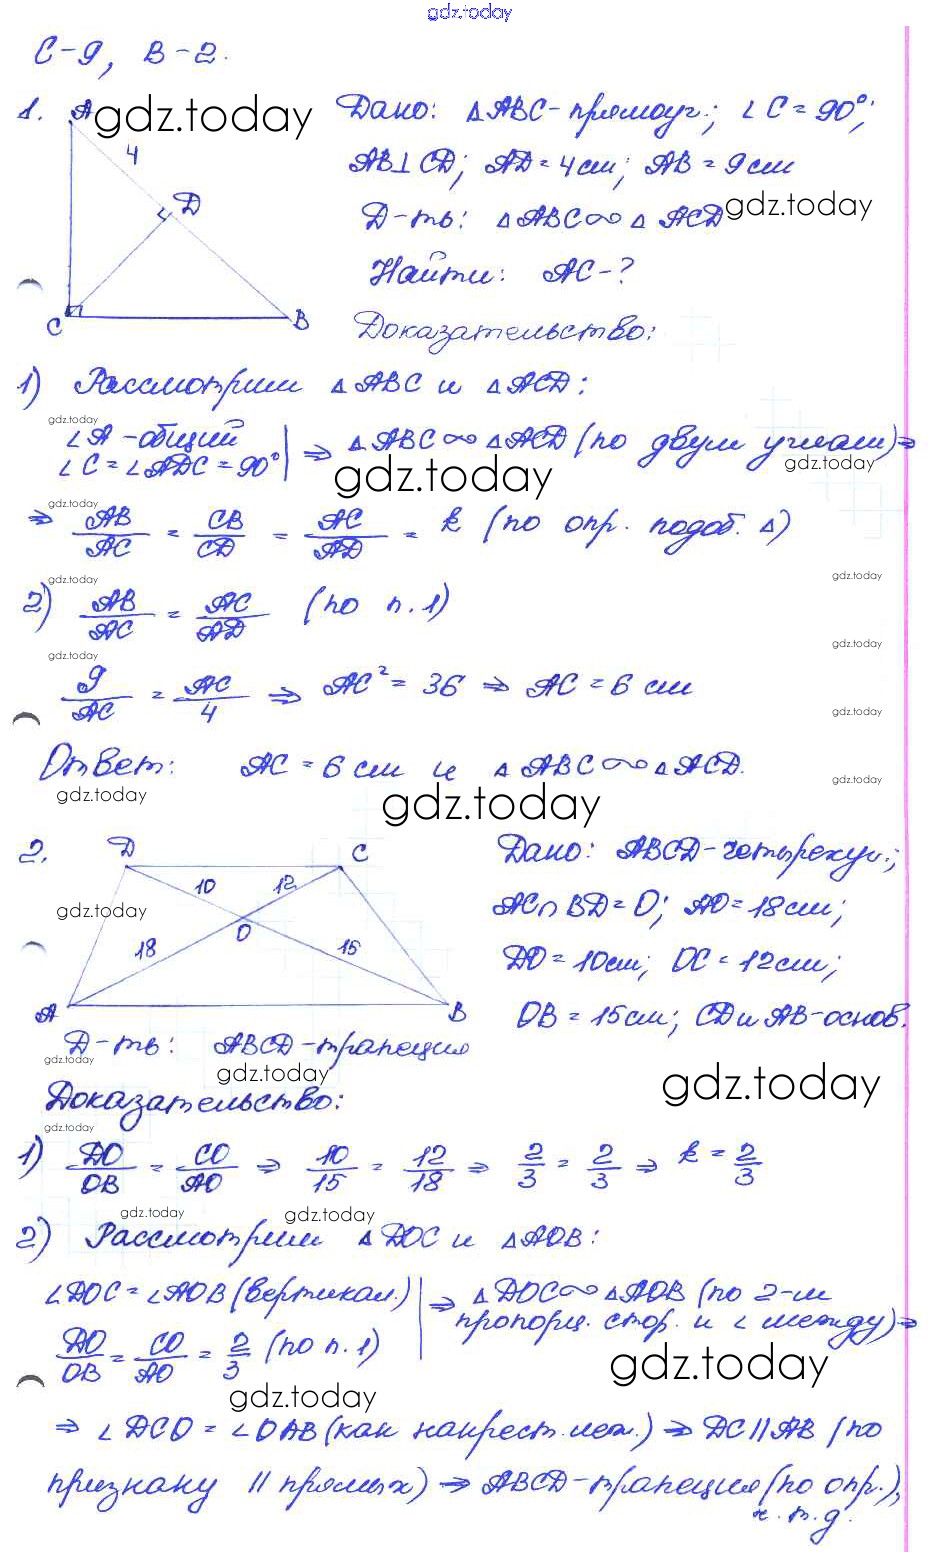 gdz.today
С-9, В-2.
1. A gdz.today Дано: △ABC-прямоуг.; ∠C = 90°;
4 AB⊥CD; AD = 4 см; AB = 9 см
D Д-ть: △ABC∞△ACD gdz.today
Найти: AC-?
C B Доказательство:
1) Рассмотрим △ABC и △ACD:
gdz.today
∠A -общий | ⇒ △ABC∞△ACD (по двум углам)⇒
∠C = ∠ADC = 90° gdz.today gdz.today
gdz.today
⇒ AB/AC = CB/CD = AC/AD = k (по опр. подоб. △)
gdz.today gdz.today
2) AB/AC = AC/AD (по п.1)
gdz.today gdz.today
9/AC = AC/4 ⇒ AC² = 36 ⇒ AC = 6 см
gdz.today
Ответ: AC = 6 см и △ABC∞△ACD.
gdz.today gdz.today gdz.today
2. D C Дано: ABCD-четырехуг.;
10 12 AC∩BD=O; AO=18см;
gdz.today
18 O 15 DO=10см; OC=12см;
A B OB=15см; CD и AB-основ.
Д-ть: ABCD-трапеция
gdz.today gdz.today gdz.today
Доказательство:
gdz.today
1) DO/OB = CO/AO ⇒ 10/15 = 12/18 ⇒ 2/3 = 2/3 ⇒ k = 2/3
gdz.today gdz.today
2) Рассмотрим △DOC и △AOB:
∠DOC = ∠AOB (вертикал.) | ⇒ △DOC∞△AOB (по 2-м
DO/OB = CO/AO = 2/3 (по п.1) пропорц. стор. и ∠ между)⇒
gdz.today gdz.today
⇒ ∠DCO = ∠OAB (как накрест. леж.) ⇒ DC||AB (по
признаку || прямых) ⇒ ABCD-трапеция (по опр.),
ч.т.д.